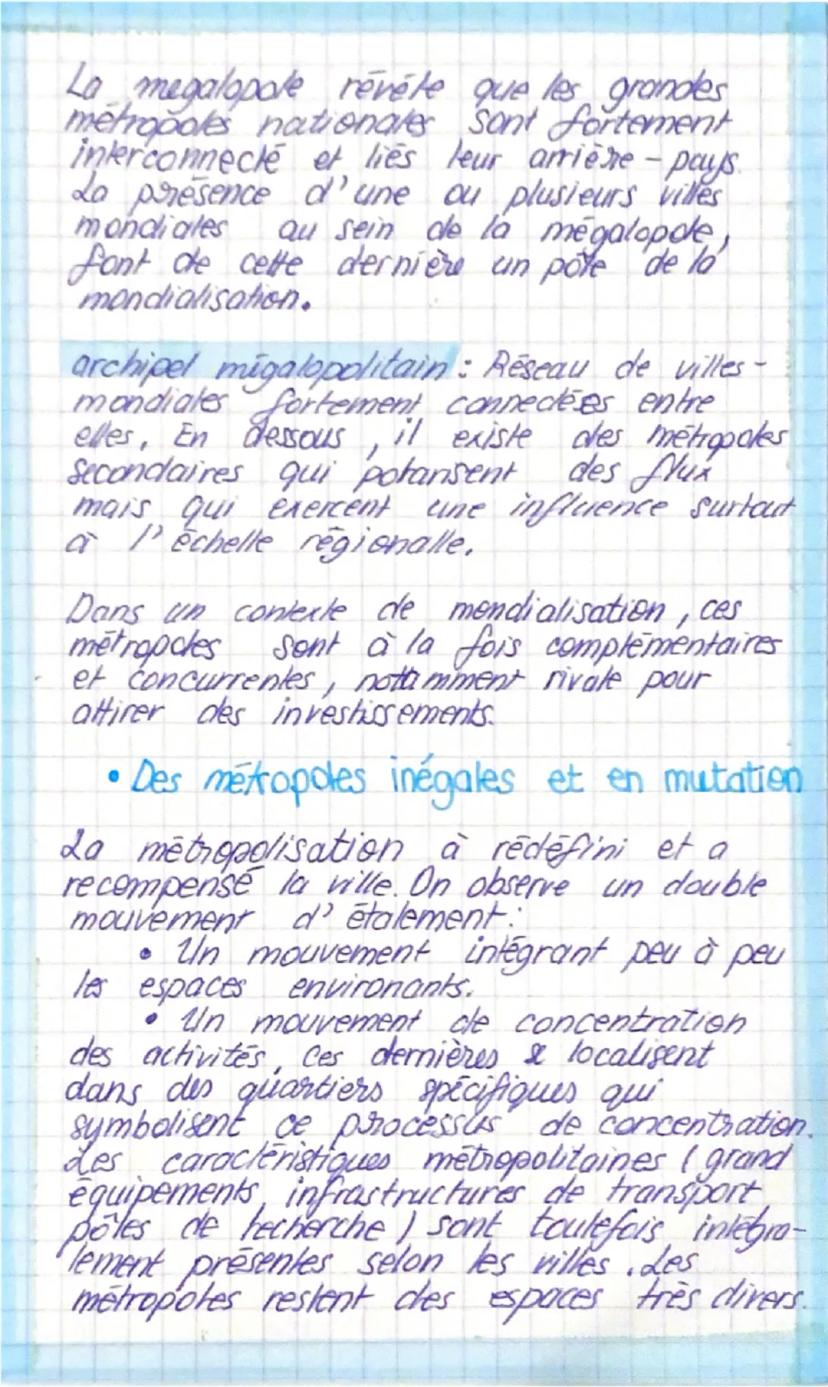 La megalopole révéle que les grandes
métropoles nationales sont fortement
interconnecté et liés leur arrière-pays.
La présence d'une ou plusieurs villes
mondiales au sein de la mégalopole,
font de cette dernière un pôle de la
mondialisation.
archipel mégalopolitain : Réseau de villes-
mondiales fortement connectées entre
elles. En dessous, il existe des métropoles
secondaires qui polarisent des flux
mais qui exercent une influence surtout
à l'échelle régionalle.
Dans un contexte de mondialisation, ces
métropoles sont à la fois complémentaires
et concurrentes, nottamment rivale pour
attirer des investissements.
• Des métropoles inégales et en mutation
La métropolisation à rédéfini et a
recompensé la ville. On observe un double
mouvement d'étalement :
• Un mouvement intégrant peu à peu
les espaces environants.
• Un mouvement de concentration
des activités, ces dernières se localisent
dans des quartiers spécifiques qui
symbolisent ce processus de concentration.
Les caractéristiques métropolitaines (grand
équipements, infrastructures de transport
pôles de recherche) sont toutefois intégra-
lement présentes selon les villes. Les
métropoles restent des espaces très divers.